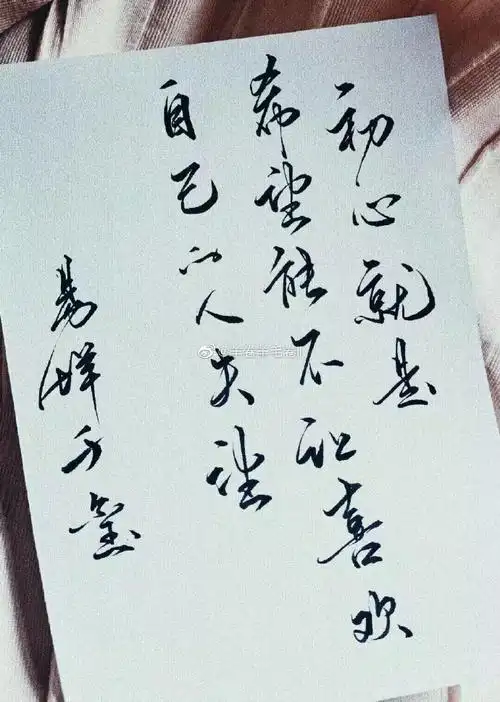 初心就是
希望能不让喜欢
自己的人失望
易烊千玺